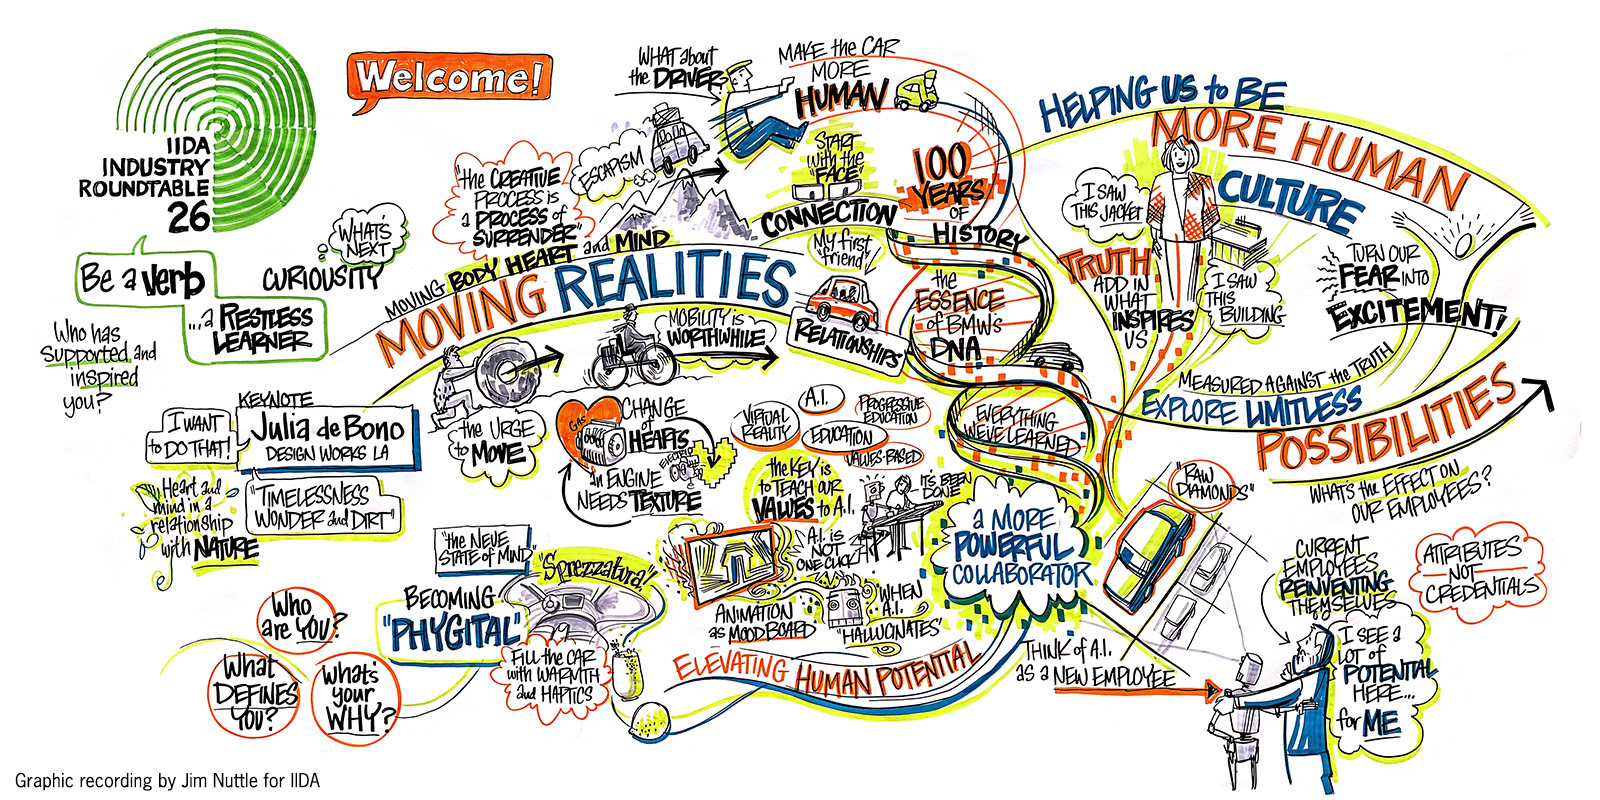 IIDA
INDUSTRY
ROUNDTABLE
26
Welcome!
Be a verb
...a RESTLESS
LEARNER
WHAT'S
NEXT
CURIOUSITY
Who has
supported and
inspired
you?
KEYNOTE
Julia de Bono
DESIGN WORKS LA
I WANT
to DO THAT!
"TIMELESSNESS
WONDER and DIRT"
Heart and
mind in a
relationship
with NATURE
Who
are YOU?
What
DEFINES
YOU?
What's
your
WHY?
"the CREATIVE
PROCESS IS
a PROCESS of
SURRENDER"
ESCAPISM
WHAT about
the DRIVER
MAKE the CAR
MORE
HUMAN
START
with the
"FACE"
CONNECTION
MOVING BODY HEART and MIND
MOVING REALITIES
My first
"friend"
RELATIONSHIPS
MOBILITY is
WORTHWHILE
the URGE
to MOVE
GAS
CHANGE
of
HEARTS
ELECTRIC
an ENGINE
NEEDS TEXTURE
"the NEUE
STATE of MIND"
BECOMING
"PHYGITAL"
"Sprezzatura!"
FILL the CAR
with WARMTH
and HAPTICS
100
YEARS
OF
HISTORY
the
ESSENCE
of BMW's
DNA
EVERYTHING
WE'VE LEARNED
VIRTUAL
REALITY
A.I.
EDUCATION
PROGRESSIVE
EDUCATION
VALUES-BASED
the KEY is
to TEACH OUR
VALUES to A.I.
IT'S BEEN
DONE
A.I. is
NOT
ONE CLICK
ANIMATION
as MOOD BOARD
WHEN
A.I.
"HALLUCINATES"
a MORE
POWERFUL
COLLABORATOR
ELEVATING HUMAN POTENTIAL
HELPING US to BE
MORE HUMAN
CULTURE
I SAW
THIS JACKET
I SAW
THIS
BUILDING
TRUTH
ADD IN
WHAT
INSPIRES
US
TURN OUR
FEAR INTO
EXCITEMENT!
MEASURED AGAINST the TRUTH
EXPLORE LIMITLESS
POSSIBILITIES
WHAT'S the EFFECT ON
OUR EMPLOYEES?
"RAW
DIAMONDS"
THINK of A.I.
as a NEW EMPLOYEE
CURRENT
EMPLOYEES
REINVENTING
THEMSELVES
ATTRIBUTES
NOT
CREDENTIALS
I SEE a
LOT of
POTENTIAL
HERE...
for ME
Graphic recording by Jim Nuttle for IIDA